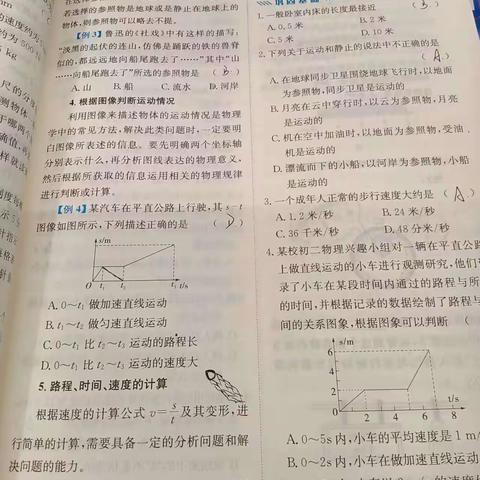 若选择的参照物是地球或是静止在地球上的
物体,则参照物可以略去不提。
【例3】鲁迅的《社戏》中有这样的描写,
“淡黑的起伏的连山,仿佛是踊跃的铁的兽脊
似的,都远远地向船尾跑去了……”其中“山
……向船尾跑去了”所选的参照物是 ( B )
A. 山 B. 船 C. 流水 D. 河岸
4. 根据图象判断运动情况
利用图象来描述物体的运动情况是物理
学中的常见方法,解决此类问题时,一定要明
白图像所表述的信息。要先明确两个坐标轴
分别表示什么,再分析图线表达的物理意义,
然后根据所获取的信息运用相关的物理规律
进行判断或计算。
【例4】某汽车在平直公路上行驶,其 s-t
图像如图所示,下列描述正确的是 ( D )
s/m
O t₁ t₂ t₃ t/s
A. 0~t₁ 做加速直线运动
B. t₁~t₂ 做匀速直线运动
C. 0~t₁ 比 t₂~t₃ 运动的路程长
D. 0~t₁ 比 t₂~t₃ 运动的速度大
5. 路程、时间、速度的计算
根据速度的计算公式 v=s/t 及其变形,进
行简单的计算,需要具备一定的分析问题和解
决问题的能力。
1. 一般卧室内床的长度最接近 (
A. 0.5 米 B. 2 米
C. 5 米 D. 10 米
2. 下列关于运动和静止的说法中不正确的是
( A )
A. 在地球同步卫星围绕地球飞行时,以地面
为参照物,同步卫星是运动的
B. 月亮在云中穿行时,以云为参照物,月亮
是运动的
C. 机在空中加油时,以地面为参照物,受油
机是运动的
D. 漂流而下的小船,以河岸为参照物,小船
是运动的
3. 一个成年人正常的步行速度大约是 ( A )
A. 1.2 米/秒 B. 24 米/秒
C. 36 千米/秒 D. 48 分米/秒
4. 某校初二物理兴趣小组对一辆在平直公路
上做直线运动的小车进行观测研究,他们
录了小车在某段时间内通过的路程与所
的时间,并根据记录的数据绘制了路程与
间的关系图象,根据图象可以判断 (
s/m
6
4
2
0 2 4 6 8 t/s
A. 0~5s 内,小车的平均速度是 1 m/
B. 0~2s 内,小车在做加速直线运动